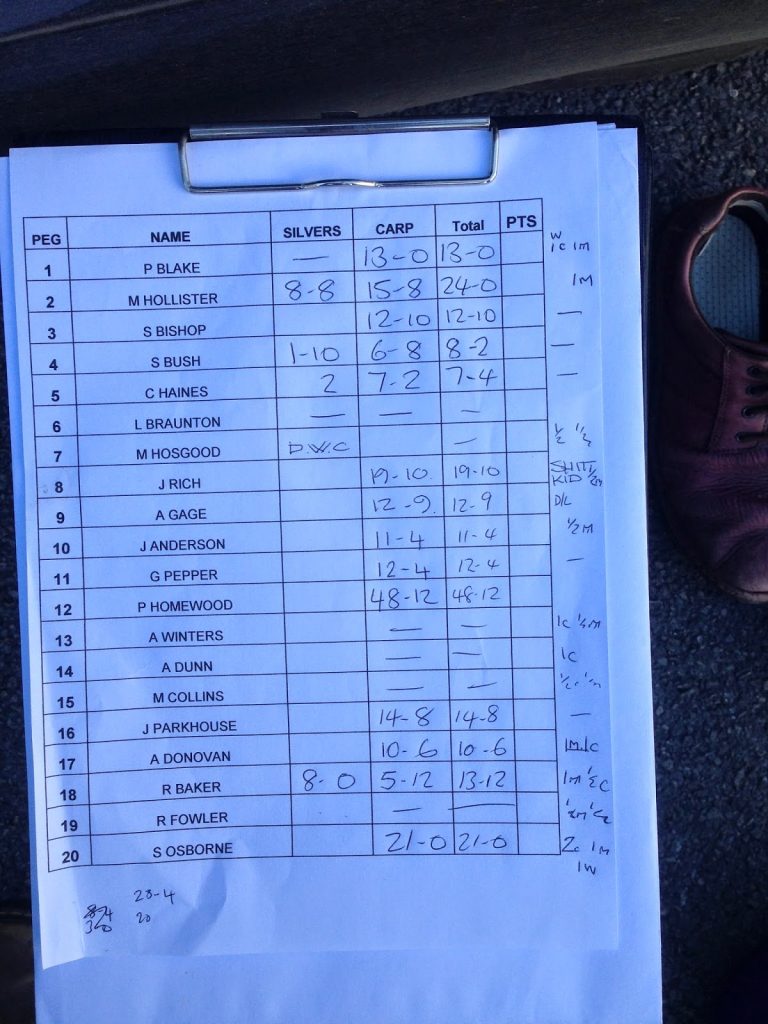 PEG NAME SILVERS CARP Total PTS
1 P BLAKE — 13-0 13-0 W 1C 1M
2 M HOLLISTER 8-8 15-8 24-0 1M
3 S BISHOP 12-10 12-10 —
4 S BUSH 1-10 6-8 8-2 —
5 C HAINES 2 7-2 7-4 —
6 L BRAUNTON — — —
7 M HOSGOOD D.W.C — 1/2 1/2
8 J RICH 19-10. 19-10 SHIT KID
9 A GAGE 12-9. 12-9 D/L
10 J ANDERSON 11-4 11-4 1/2M
11 G PEPPER 12-4 12-4 —
12 P HOMEWOOD 48-12 48-12
13 A WINTERS — — 1C 1/4M
14 A DUNN — — 1C
15 M COLLINS — —
16 J PARKHOUSE 14-8 14-8 —
17 A DONOVAN 10-6 10-6 1M 1C
18 R BAKER 8-0 5-12 13-12 1M 1/2C
19 R FOWLER — —
20 S OSBORNE 21-0 21-0 2C 1M
1W
23-4
20